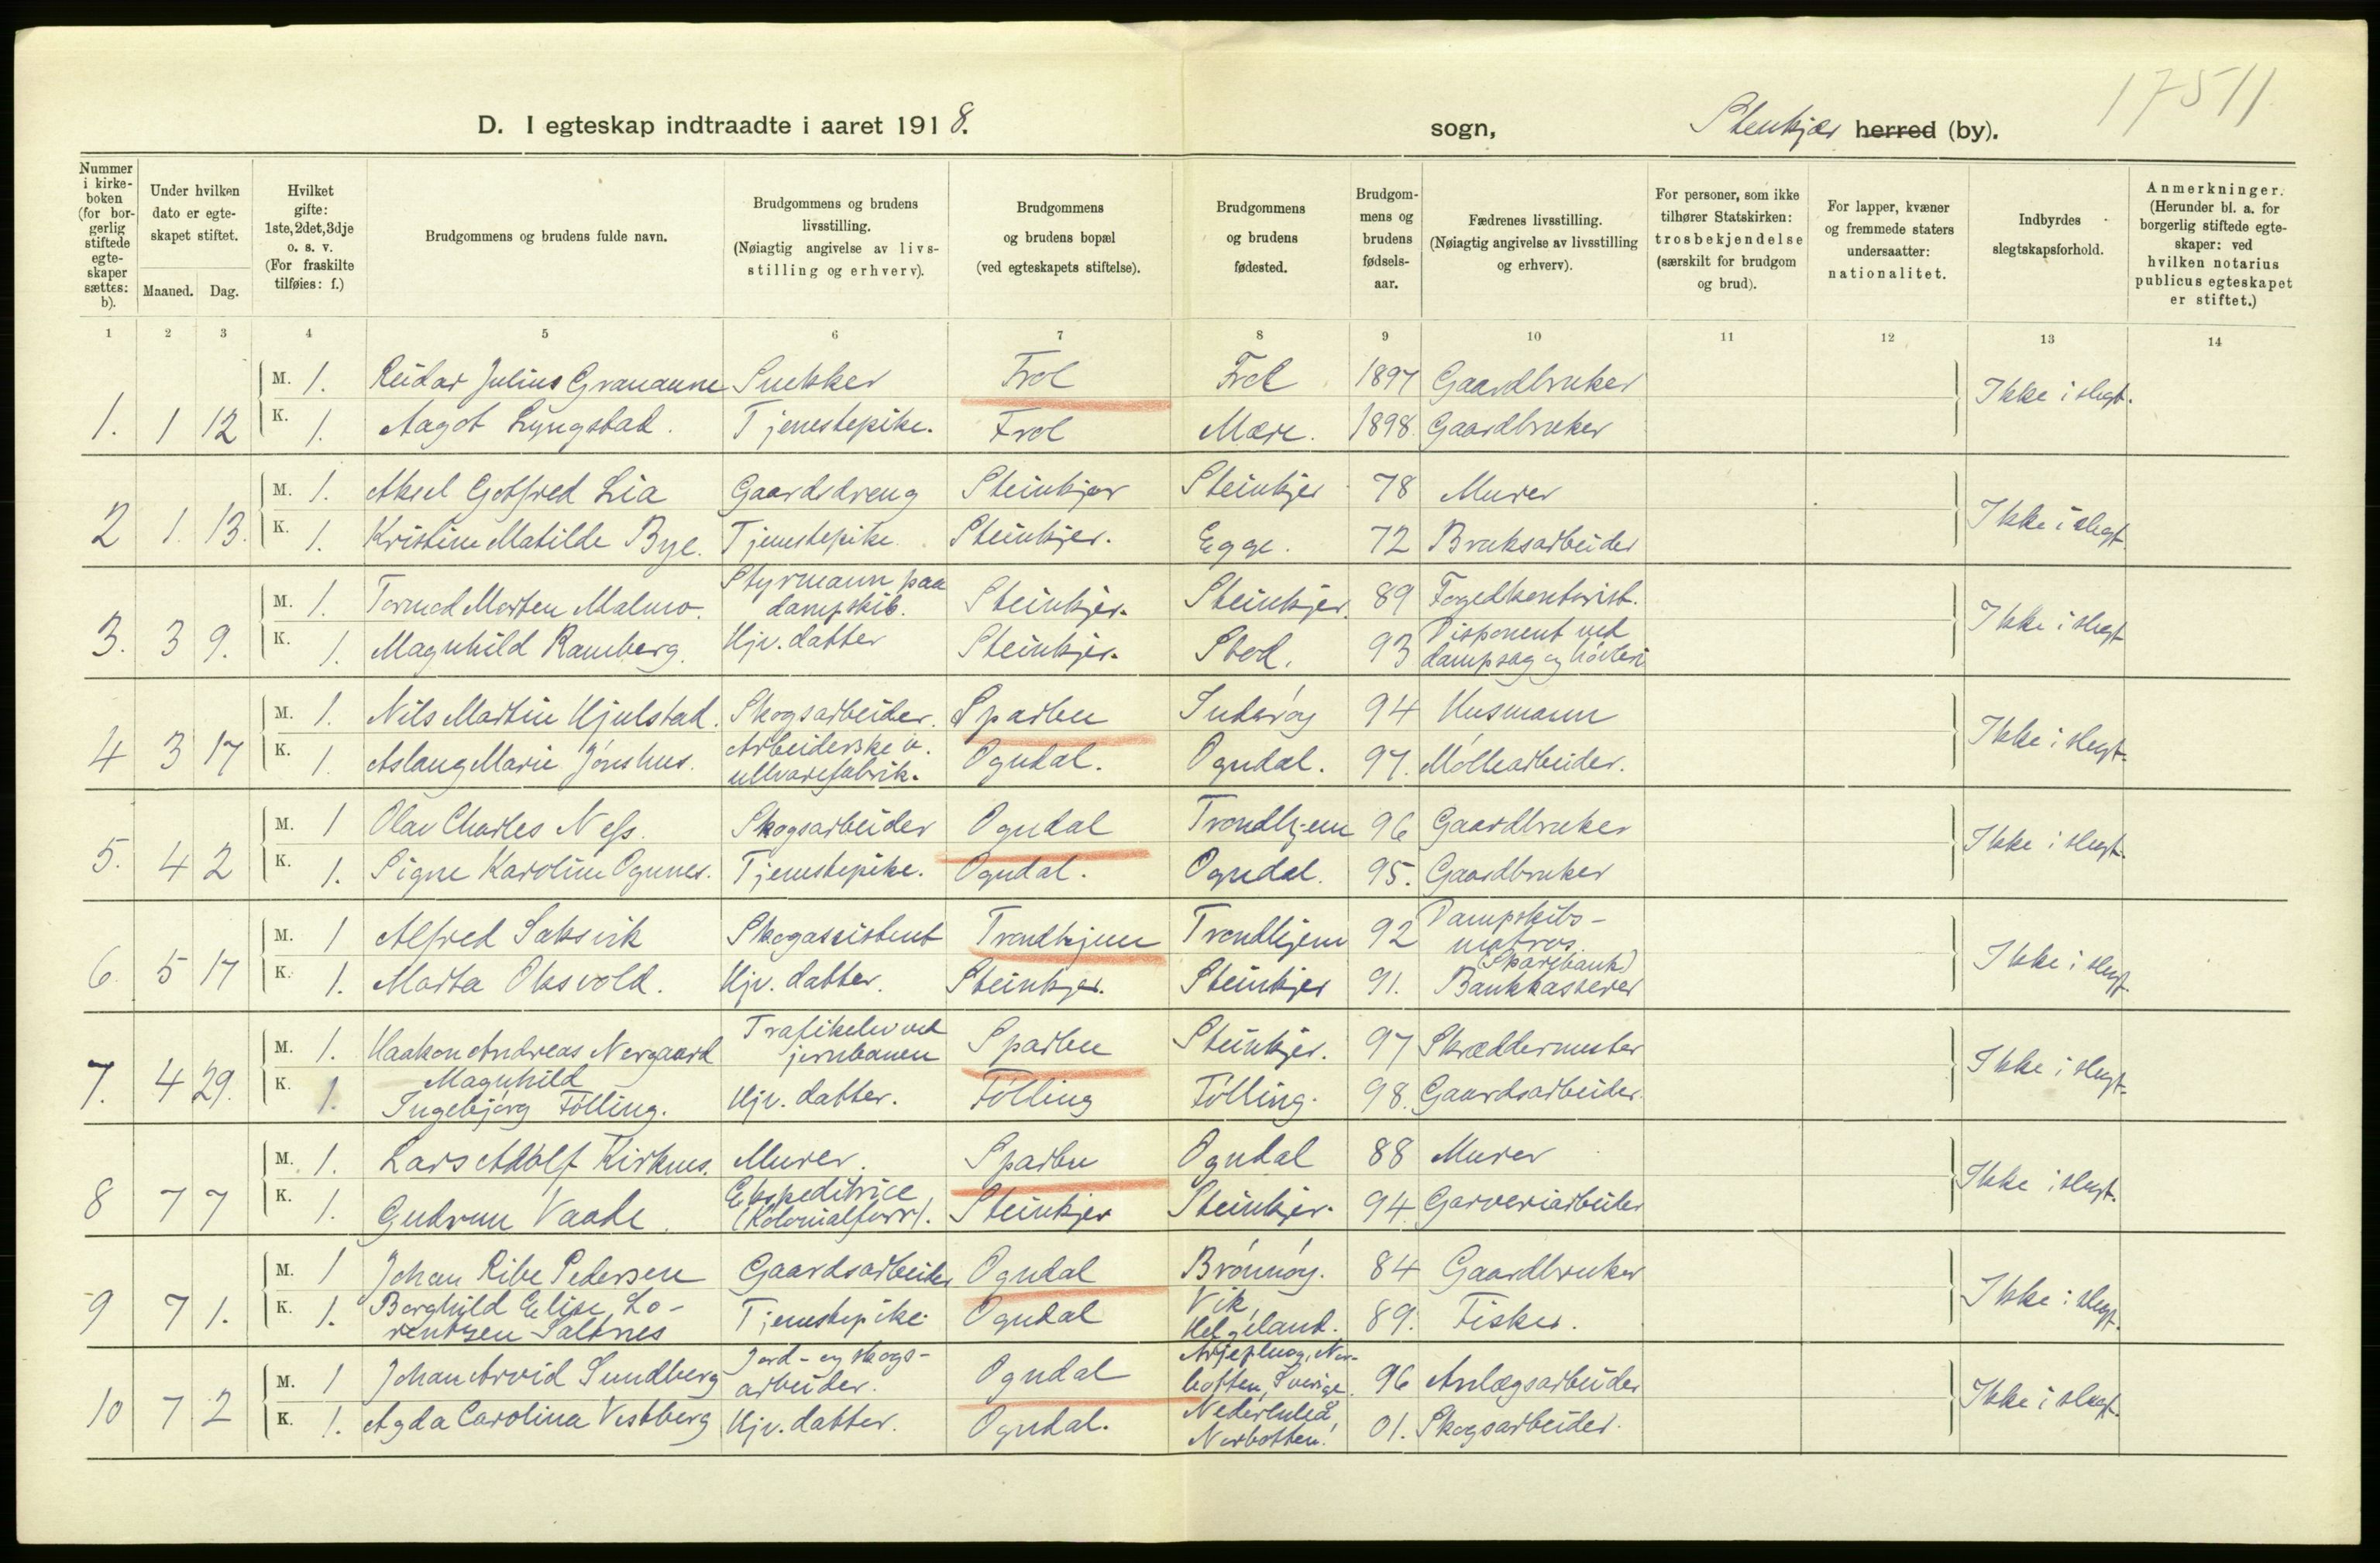 17511
D. I egteskap indtraadte i aaret 1918. sogn, Stenkjær herred (by).
Nummer i kirkeboken (for borgerlig stiftede egteskaper sættes: b). | Under hvilken dato er egteskapet stiftet. Maaned. Dag. | Hvilket gifte: 1ste, 2det, 3dje o. s. v. (For fraskilte tilføies: f.) | Brudgommens og brudens fulde navn. | Brudgommens og brudens livsstilling. (Nøiagtig angivelse av livsstilling og erhverv). | Brudgommens og brudens bopæl (ved egteskapets stiftelse). | Brudgommens og brudens fødested. | Brudgommens og brudens fødselsaar. | Fædrenes livsstilling. (Nøiagtig angivelse av livsstilling og erhverv). | For personer, som ikke tilhører Statskirken: trosbekjendelse (særskilt for brudgom og brud). | For lapper, kvæner og fremmede staters undersaatter: nationalitet. | Indbyrdes slegtskapsforhold. | Anmerkninger. (Herunder bl. a. for borgerlig stiftede egteskaper: ved hvilken notarius publicus egteskapet er stiftet.)
1 2 3 4 5 6 7 8 9 10 11 12 13 14
M. 1. Reidar Julius Granaune Snekker Frol Frol 1897 Gaardbruker Ikke i slegt.
1. 1 12 K. 1. Aagot Lyngstad. Tjenestepike. Frol Mære. 1898 Gaardbruker
M. 1. Aksel Gotfred Lia Gaardsdreng Steinkjer Steinkjer 78 Murer Ikke i slegt
2 1. 13. K. 1. Kristine Matilde Bye. Tjenestepike. Steinkjer. Egge. 72 Bruksarbeider
M. 1. Tormod Morten Malmo. Styrmann paa dampskib. Steinkjer. Steinkjer. 89 Fogedkontorist. Ikke i slegt
3. 3 9. K. 1. Magnhild Ramberg. Hjv. datter Steinkjer. Stod. 93 Disponent ved dampsag og høvleri
M. 1. Nils Martin Hjulstad. Skogsarbeider. Sparbu Inderøy 94 Husmann Ikke i slegt.
4 3 17 K. 1. Aslaug Marie Jønshus. Arbeiderske v. ullvarefabrik. Ogndal. Ogndal. 97. Møllearbeider.
M. 1 Olav Charles Ness. Skogsarbeider Ogndal Trondhjem 96 Gaardbruker Ikke i slegt.
5. 4 2 K. 1. Signe Karoline Ognnes. Tjenestepike. Ogndal. Ogndal. 95. Gaardbruker
M. 1 Alfred Saksvik Skogassistent Trondhjem Trondhjem 92 Dampskibsmatros. Ikke i slegt
6 5 17 K. 1. Marta Oksvold. Hjv. datter. Steinkjer. Steinkjer 91. (Sparebank) Bankkasserer
M. 1. Haakon Andreas Nergaard Trafikelev ved jernbanen Sparbu Steinkjer. 97 Skræddermester Ikke i slegt.
7. 4 29. K. 1. Magnhild Ingebjørg Følling. Hjv. datter. Følling Følling. 98. Gaardsarbeider.
M. 1. Lars Adolf Kirknes. Murer. Sparbu Ogndal 88 Murer Ikke i slegt.
8 7 7 K. 1. Gudrun Vaade. Ekspeditrice (Kolonialforr). Steinkjer Steinkjer. 94. Garveriarbeider
M. 1 Johan Ribe Pedersen Gaardsarbeider Ogndal Brønnøy. 84 Gaardbruker Ikke i slegt.
9 7 1. K. 1. Borghild Elise Lorentzen Saltnes Tjenestepike. Ogndal Vik, Helgeland. 89. Fisker.
M. 1 Johan Arvid Sundberg Jord- og skogsarbeider. Ogndal Arjepluog, Norbotten, Sverige. 96 Anlægsarbeider Ikke i slegt.
10 7 2 K. 1. Agda Carolina Vestberg Hjv. datter. Ogndal. Nederluleå, Norbotten. 01. Skogsarbeider.